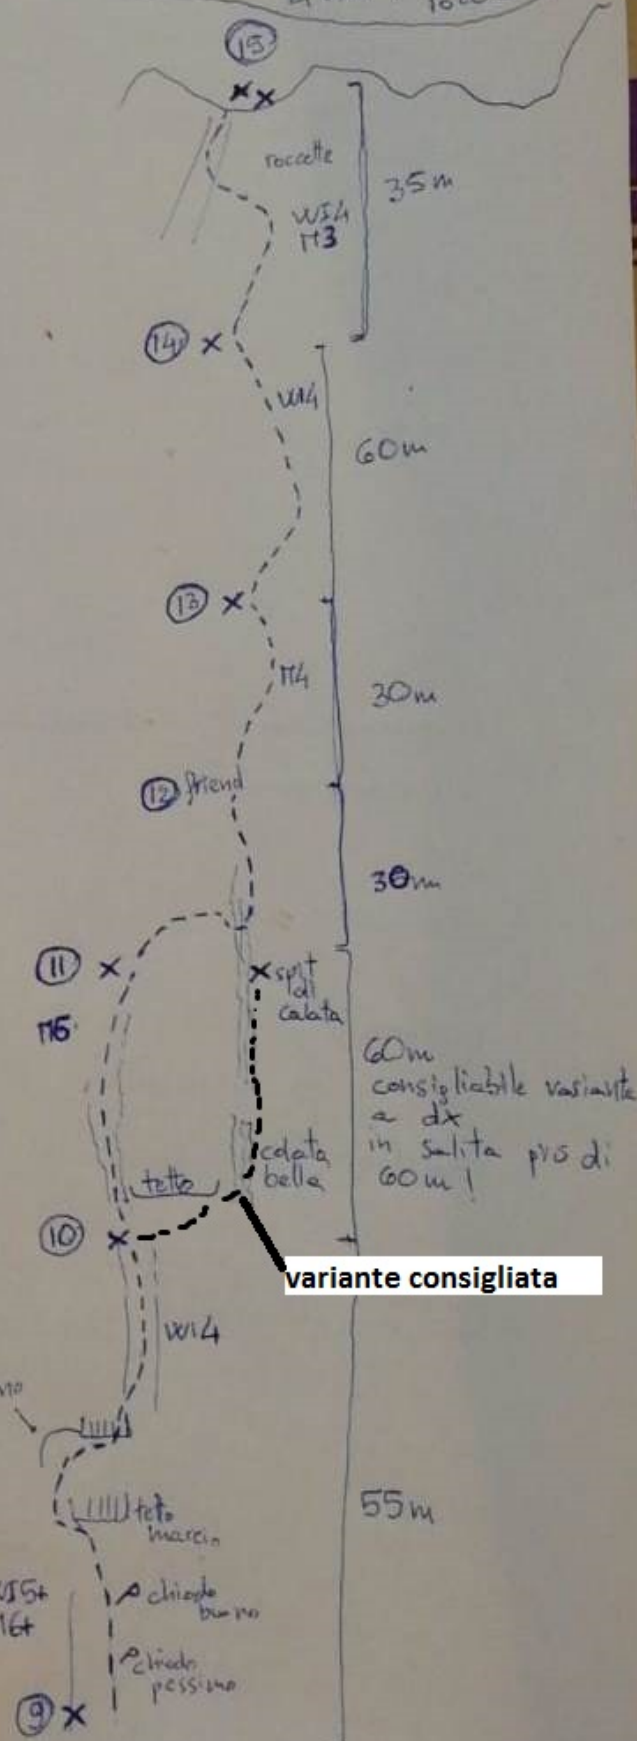 15
roccette
35m
WI4
M3
14
WI4
60m
13
M4
30m
12 friend
30m
11
spit
di
calata
M5
60m
consigliabile variante
a dx
in salita più di
60m!
colata
bella
tetto
10
variante consigliata
WI4
55m
tetto
marcio
chiodo
buono
chiodo
pessimo
9